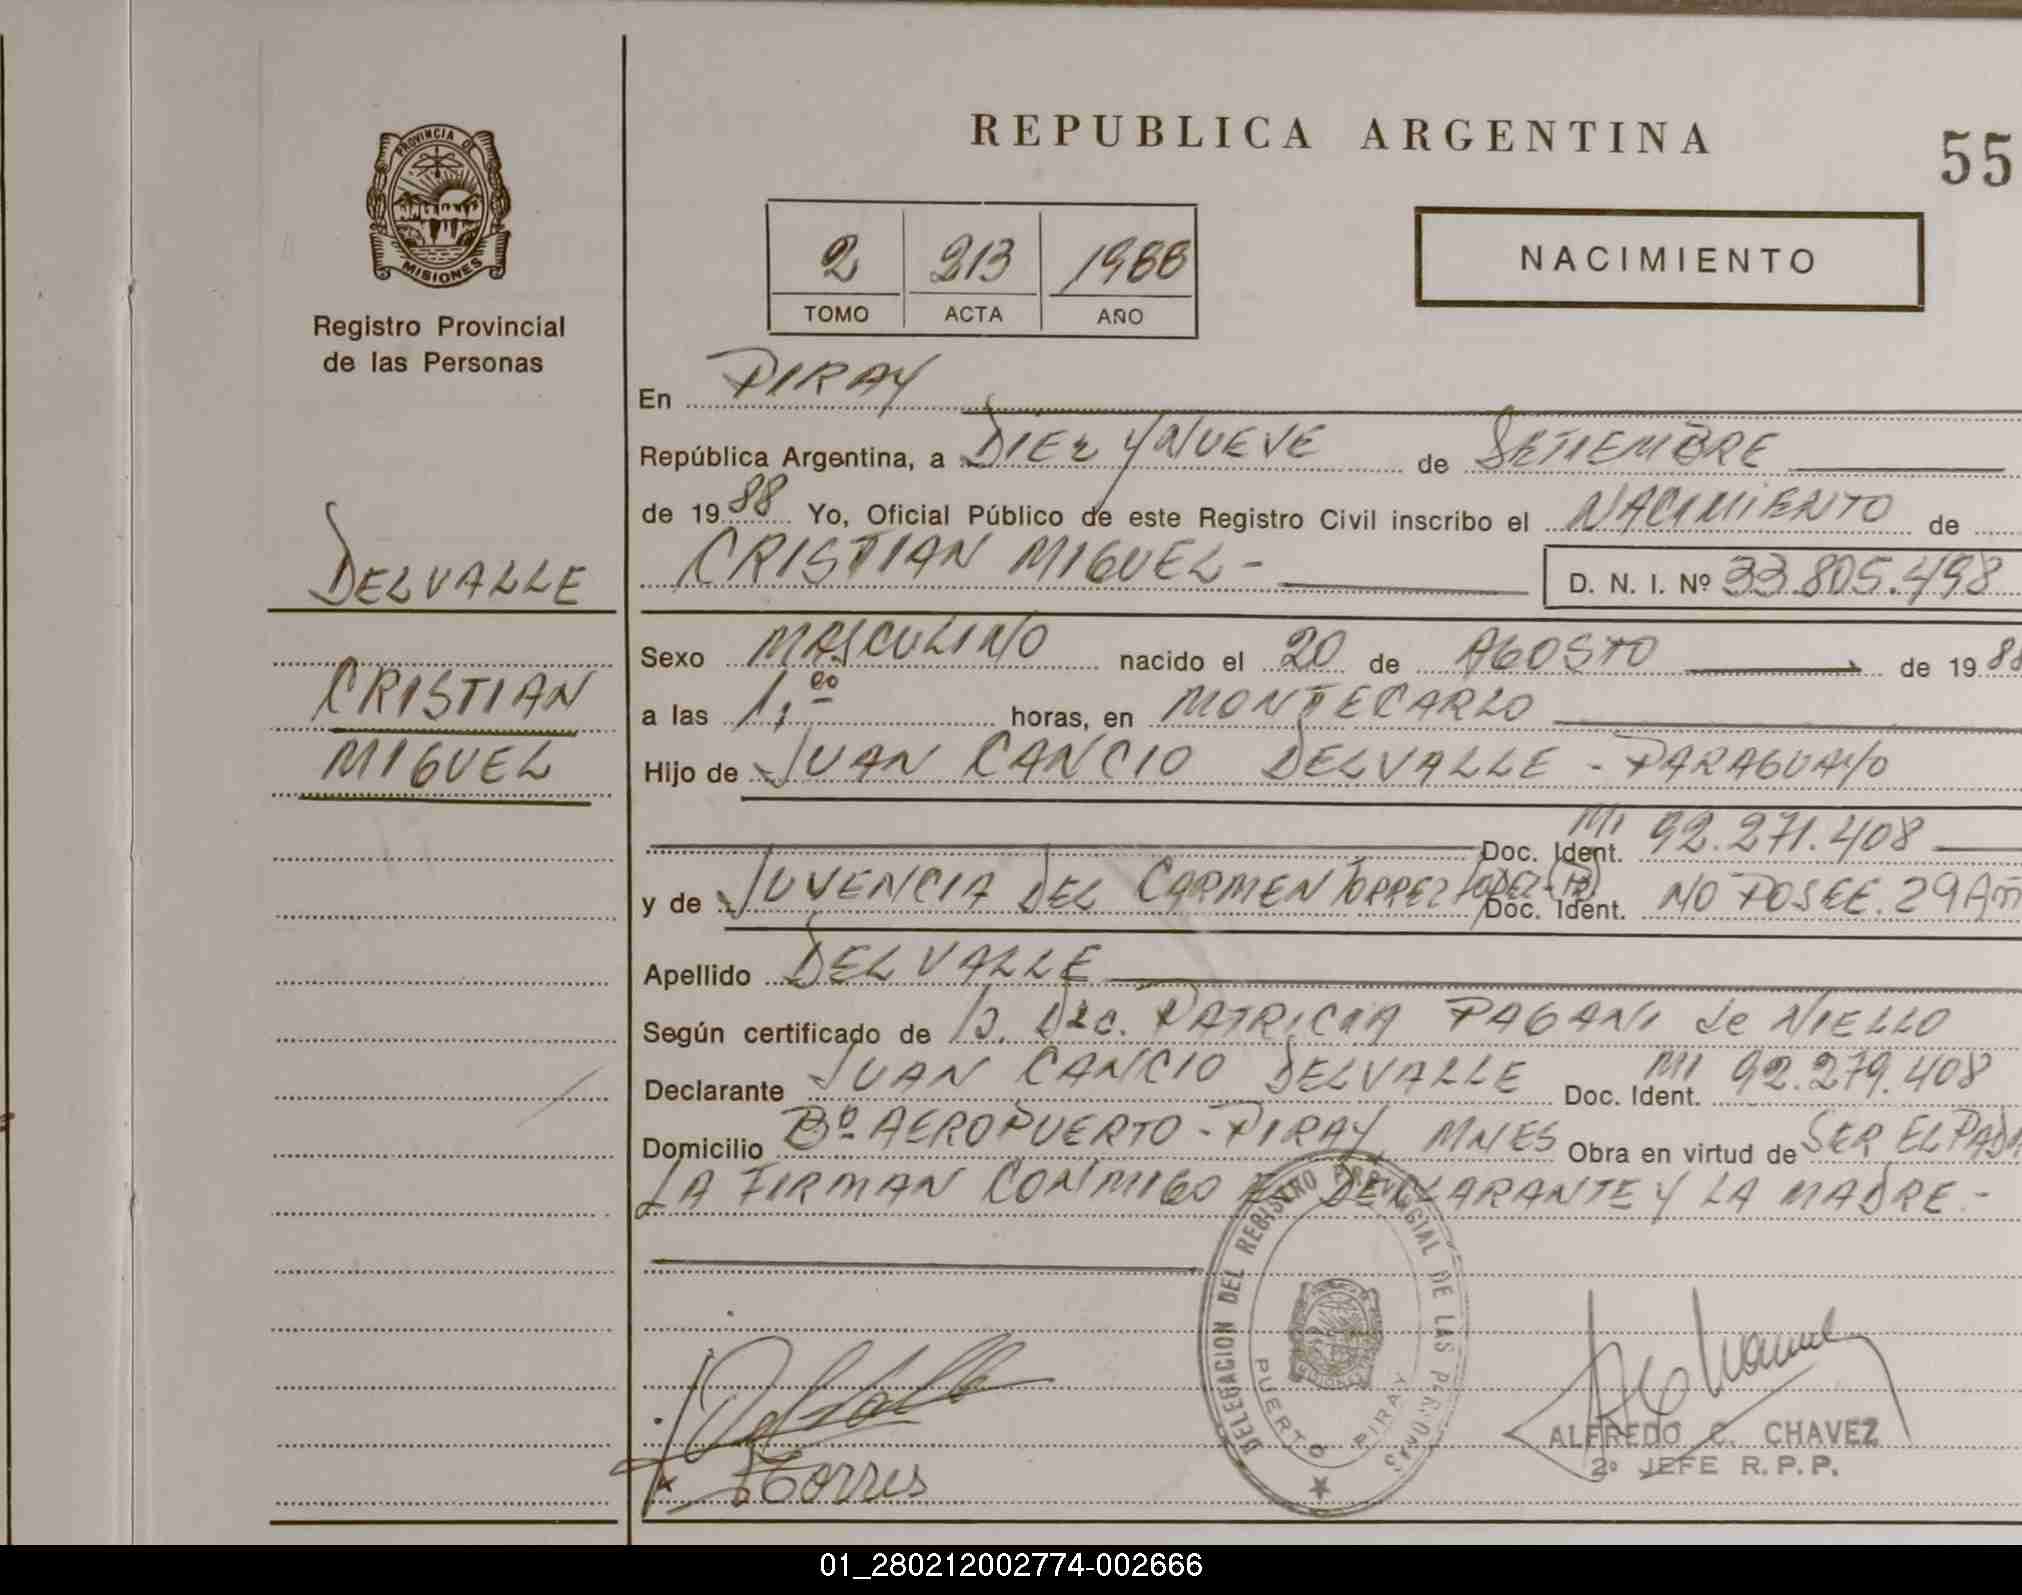 REPUBLICA ARGENTINA
55
PROVINCIA DE
MISIONES
Registro Provincial
de las Personas
2 213 1988
TOMO ACTA AÑO
NACIMIENTO
En PIRAY
República Argentina, a DIEZ Y NUEVE de SETIEMBRE
de 1988 Yo, Oficial Público de este Registro Civil inscribo el NACIMIENTO de
CRISTIAN MIGUEL - D. N. I. Nº 33.805.498
DELVALLE
CRISTIAN
MIGUEL
Sexo MASCULINO nacido el 20 de AGOSTO de 1988
a las 1,00 horas, en MONTECARLO
Hijo de JUAN CANCIO DELVALLE - PARAGUAYO
Doc. Ident. MI 92.271.408
y de JUVENCIA DEL CARMEN TORREZ Doc. Ident. NO POSEE. 29 Añ
Apellido DELVALLE
Según certificado de PATRICIA PAGANI de NIELLO
Declarante JUAN CANCIO DELVALLE Doc. Ident. MI 92.279.408
Domicilio Bº AEROPUERTO - PIRAY MNES Obra en virtud de SER EL PADR
LA FIRMAN CONMIGO EL DECLARANTE Y LA MADRE -
DELEGACION DEL REGISTRO PROVINCIAL DE LAS PERSONAS
PUERTO PIRAY
Delvalle
Torres
ALFREDO C. CHAVEZ
2º JEFE R.P.P.
01_280212002774-002666